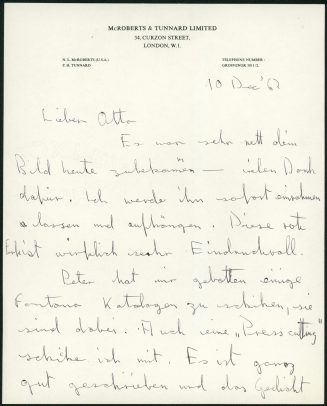 McROBERTS & TUNNARD LIMITED
34, CURZON STREET,
LONDON, W.1.
N. L. McROBERTS (U.S.A.)
P. H. TUNNARD
TELEPHONE NUMBER :
GROSVENOR 3811/2.
10 Dec '62
Lieber Otto
Es war sehr nett dein
Bild heute zubekommen — vielen Dank
dafür. Ich werde ihn sofort einrahmen
lassen und aufhängen. Diese rote
ist wirklich sehr Eindrucksvoll.
Peter hat mir gebetten einige
Fontana Katalogen zu schiken, sie
sind dabei. Auch eine „Presscutting"
schike ich mit. Es ist ganz
gut geschrieben und das Gedicht